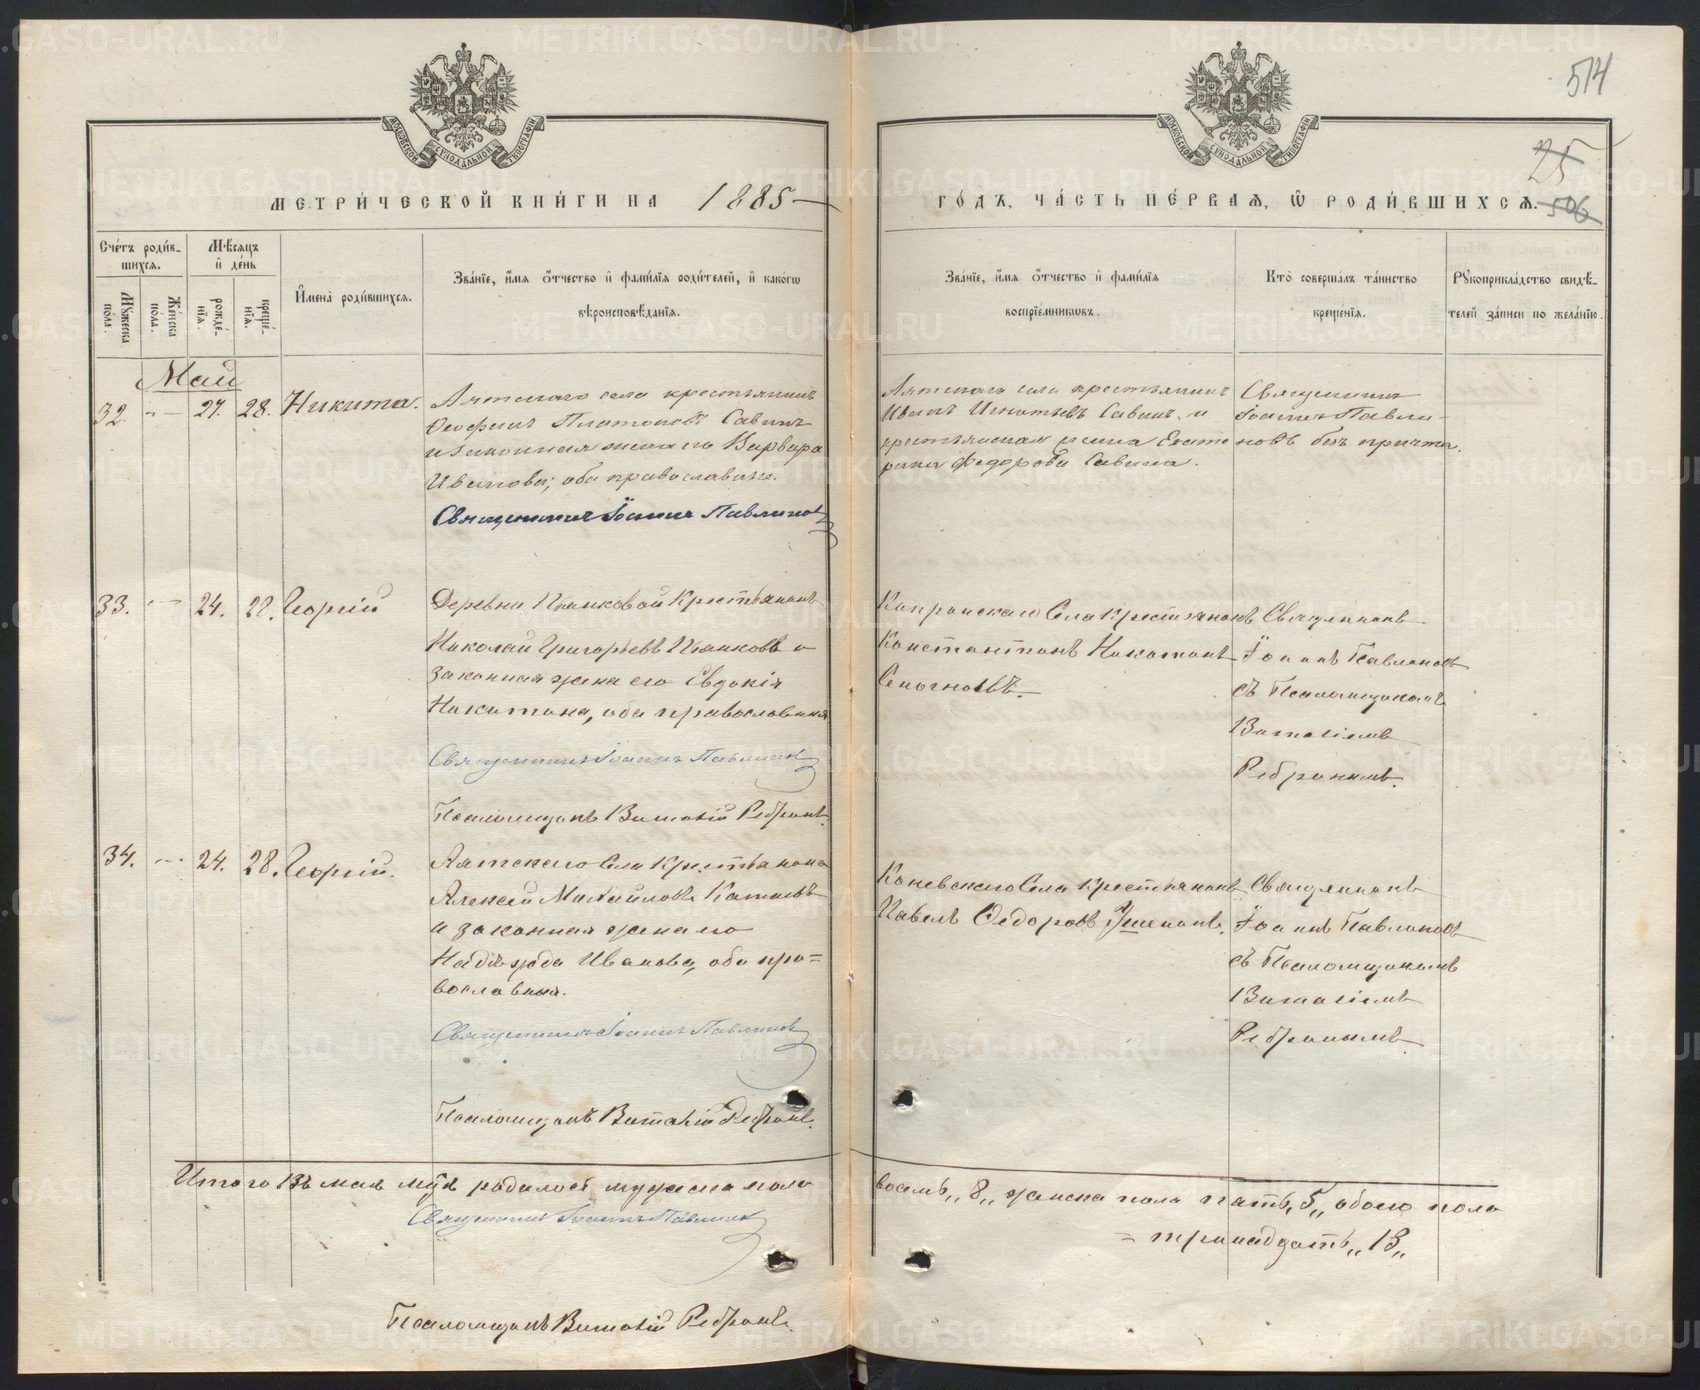 514
25
506
МЕТРИ́ЧЕСКОЙ КНИ́ГИ НА 1885
ГО́ДЪ, ЧА́СТЬ ПЕ́РВАѦ, Ѡ РОДИ́ВШИХСѦ.
Сче́тъ роди́в-
шихсѧ.
Мѣ́сѧцъ
и҆ де́нь
Му́жеска по́ла.
Же́нска по́ла.
рожде́-
нїѧ.
креще́-
нїѧ.
И҆мена̀ роди́вшихсѧ.
Зва́нїе, и҆́мѧ ѻ҆́тчество и҆ фами́лїѧ роди́телей, и҆ како́гѡ
вѣроисповѣ́данїѧ.
Зва́нїе, и҆́мѧ ѻ҆́тчество и҆ фами́лїѧ
воспрїе́мникѡвъ.
Кто̀ соверша́лъ та́инство
креще́нїѧ.
Рꙋкоприкла́дство свидѣ́-
телей за́писи по жела́нїю.
Май
32. — 27. 28. Никита.
Аятскаго села крестьянинъ
Феофилъ Платоновъ Савинъ
и законная жена его Варвара
Иванова; оба православные.
Священникъ Іоаннъ Павлинов
Аятскаго села крестьянинъ
Иванъ Игнатьевъ Савинъ и
крестьянская жена Екате
рина Федорова Савина.
Священникъ
Іоаннъ Павли-
новъ безъ причта.
33. — 24. 28. Георгій
Деревни Пьанковой Крестьянинъ
Николай Григорьевъ Пьанковъ и
законная жена его Евдокія
Никитина, оба православныя
Священникъ Іоаннъ Павлинов
Псаломщикъ Виталій Ребринъ.
Села Крестьянинъ
Константинъ Никитинъ
Священникъ
Іоаннъ Павлиновъ
съ Псаломщикомъ
Виталіемъ
Ребринымъ.
34. — 24. 28. Георгій.
Аятскаго Села Крестьянина
Алексей Михайловъ
и законная жена его
Надѣжда Иванова, оба пра=
вославныя.
Священникъ Іоаннъ Павлинов
Псаломщикъ Виталій Ребринъ.
Коневскаго Села Крестьянинъ
Павелъ Федоровъ
Священникъ
Іоаннъ Павлиновъ
съ Псаломщикомъ
Виталіемъ
Ребринымъ
Итого въ маѣ мцѣ родилось мужеска пола
восемь „8„ женска пола пять „5„ обоего пола
= тринадцать „13„
Священникъ Іоаннъ Павлинов
Псаломщикъ Виталій Ребринъ.